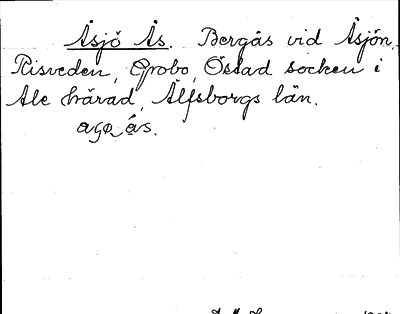 Åsjö Ås. Bergås vid Åsjön,
Risveden, Grobo, Östad socken i
Ale härad, Älfsborgs län.
ås.